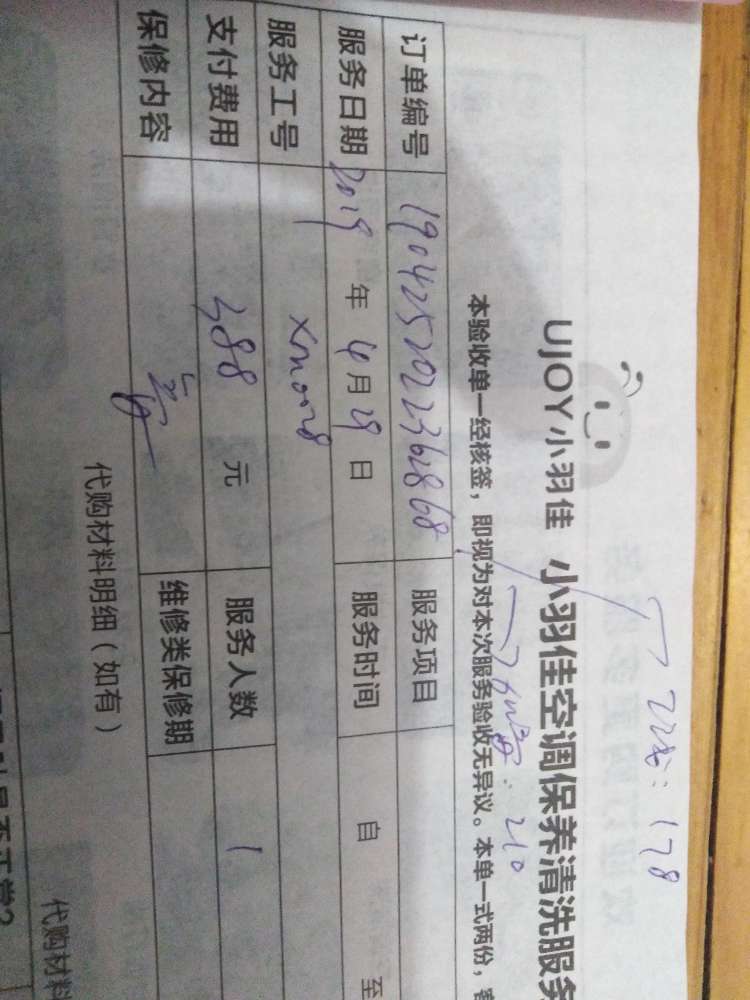 178
UJOY小羽佳 小羽佳空调保养清洗服务
210
本验收单一经核签，即视为对本次服务验收无异议。本单一式两份，客
订单编号 1904252022362868 服务项目
服务日期 2019 年 4 月 29 日 服务时间 自 至
服务工号 xm0028
支付费用 388 元 服务人数 1
保修内容 维修类保修期
代购材料明细（如有）
代购材料